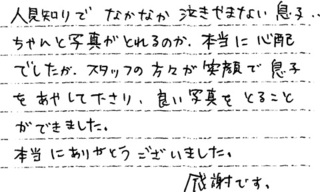 人見知りで なかなか 泣きやまない 息子‥
ちゃんと写真がとれるのか、本当に心配
でしたが、スタッフの方々が笑顔で息子
をあやして下さり、良い写真をとること
ができました。
本当にありがとうございました。
感謝です。